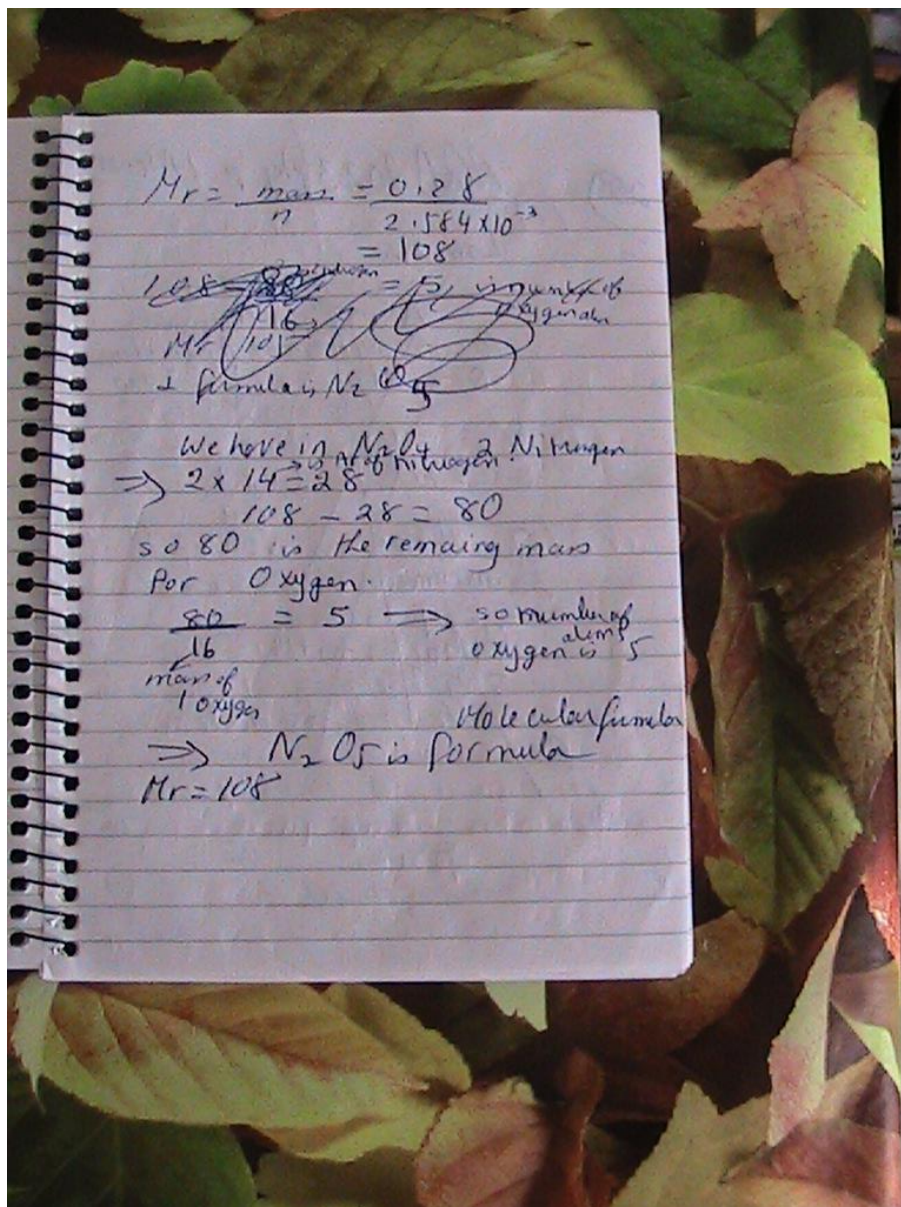 Mr = mass/n = 0.28/2.584x10^-3
= 108
108 - = 5, is number of
16
Mr 101
formula is N2 O5
We have in N2O4 2 Nitrogen
is Ar of Nitrogen.
=> 2 x 14 = 28
108 - 28 = 80
so 80 is the remaing mass
for Oxygen.
80/16 = 5 => so number of atoms
oxygen is 5
mass of
1 oxygen
Molecular formula
=> N2O5 is formula
Mr = 108